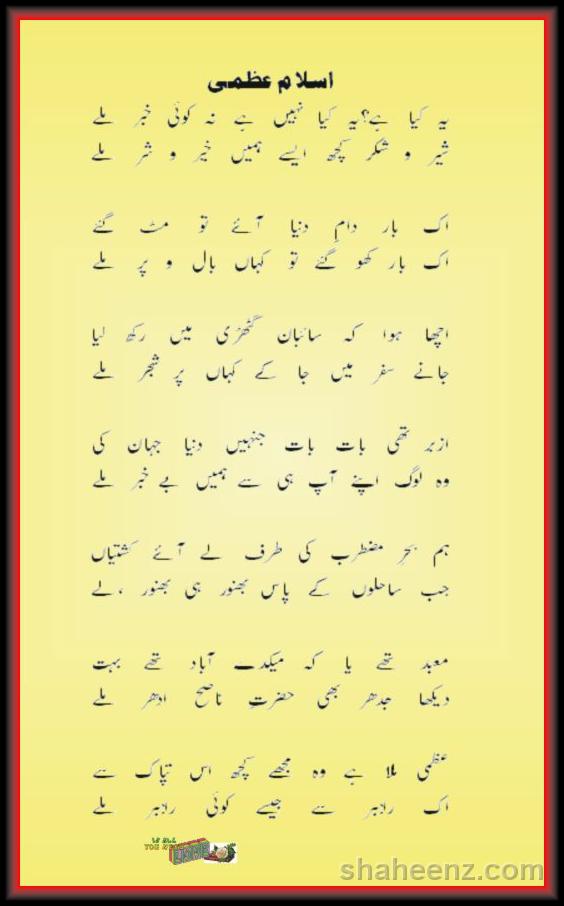 اسلام عظمی
یہ کیا ہے؟یہ کیا نہیں ہے نہ کوئی خبر ملے
شیر و شکر کچھ ایسے ہمیں خیر و شر ملے
اک بار دامِ دنیا آئے تو مٹ گئے
اک بار کھو گئے تو کہاں بال و پر ملے
اچھا ہوا کہ سائبان گٹھڑی میں رکھ لیا
جانے سفر میں جا کے کہاں پر شجر ملے
ازبر تھی بات بات جنہیں دنیا جہان کی
وہ لوگ اپنے آپ ہی سے ہمیں بے خبر ملے
ہم بحرِ مضطرب کی طرف لے آئے کشتیاں
جب ساحلوں کے پاس بھنور ہی بھنور ملے
معبد تھے یا کہ میکدے آباد تھے بہت
دیکھا جدھر بھی حضرتِ ناصح ادھر ملے
عظمی ملا ہے وہ مجھے کچھ اس تپاک سے
اک راہبر سے جیسے کوئی راہبر ملے
shaheenz.com